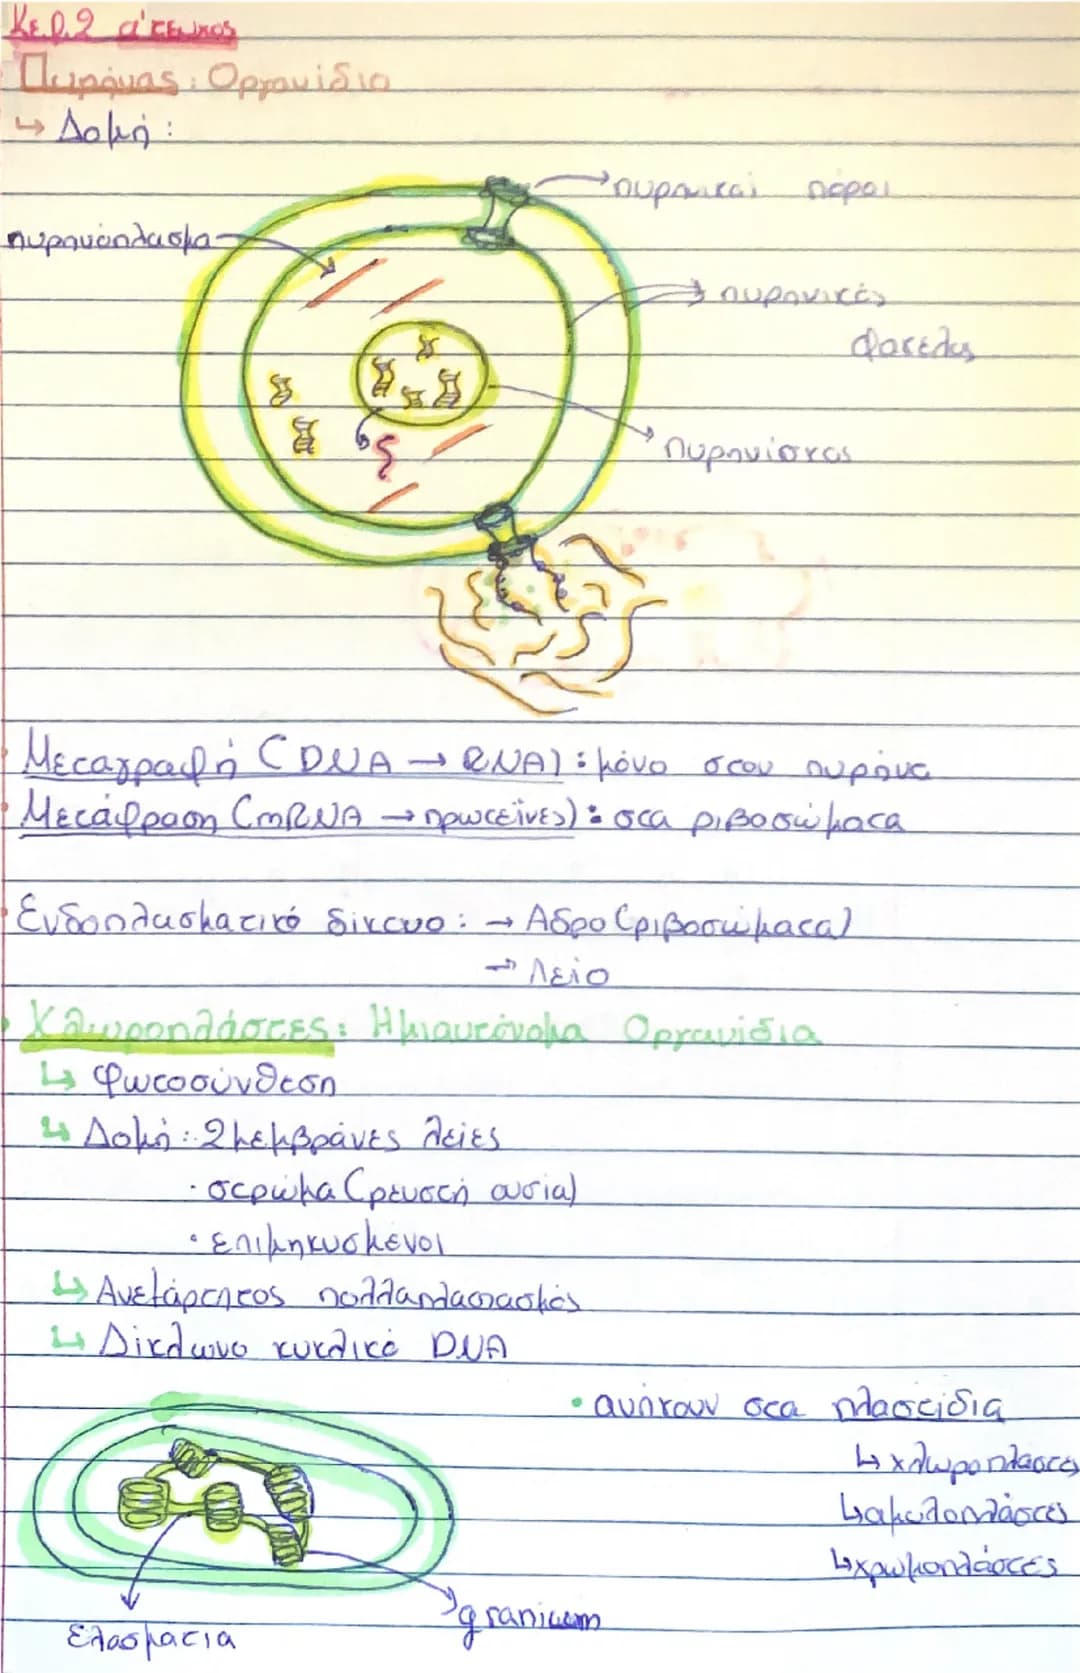 Κεφ.2 α' τεύχος
Πυρήνας: Οργανίδιο
↳ Δομή:
πυρηνικοί πόροι
πυρηνόπλασμα
πυρηνικές
φάκελος
πυρηνίσκος
Μεταγραφή (DNA → RNA): μόνο στον πυρήνα
Μετάφραση (mRNA → πρωτεΐνες): στα ριβοσώματα
Ενδοπλασματικό δίκτυο: → Αδρο (ριβοσώματα)
→ Λείο
Χλωροπλάστες: Ημιαυτόνομα Οργανίδια
↳ Φωτοσύνθεση
↳ Δομή: 2 μεμβράνες λείες
· στρώμα (ρευστή ουσία)
· επιμηκυσμένοι
↳ Ανεξάρτητος πολλαπλασιασμός
↳ Δίκλωνο κυκλικό DNA
• ανήκουν στα πλαστίδια
↳ χλωροπλάστες
↳ αμυλοπλάστες
↳ χρωμοπλάστες
granicum
Ελασμάτια